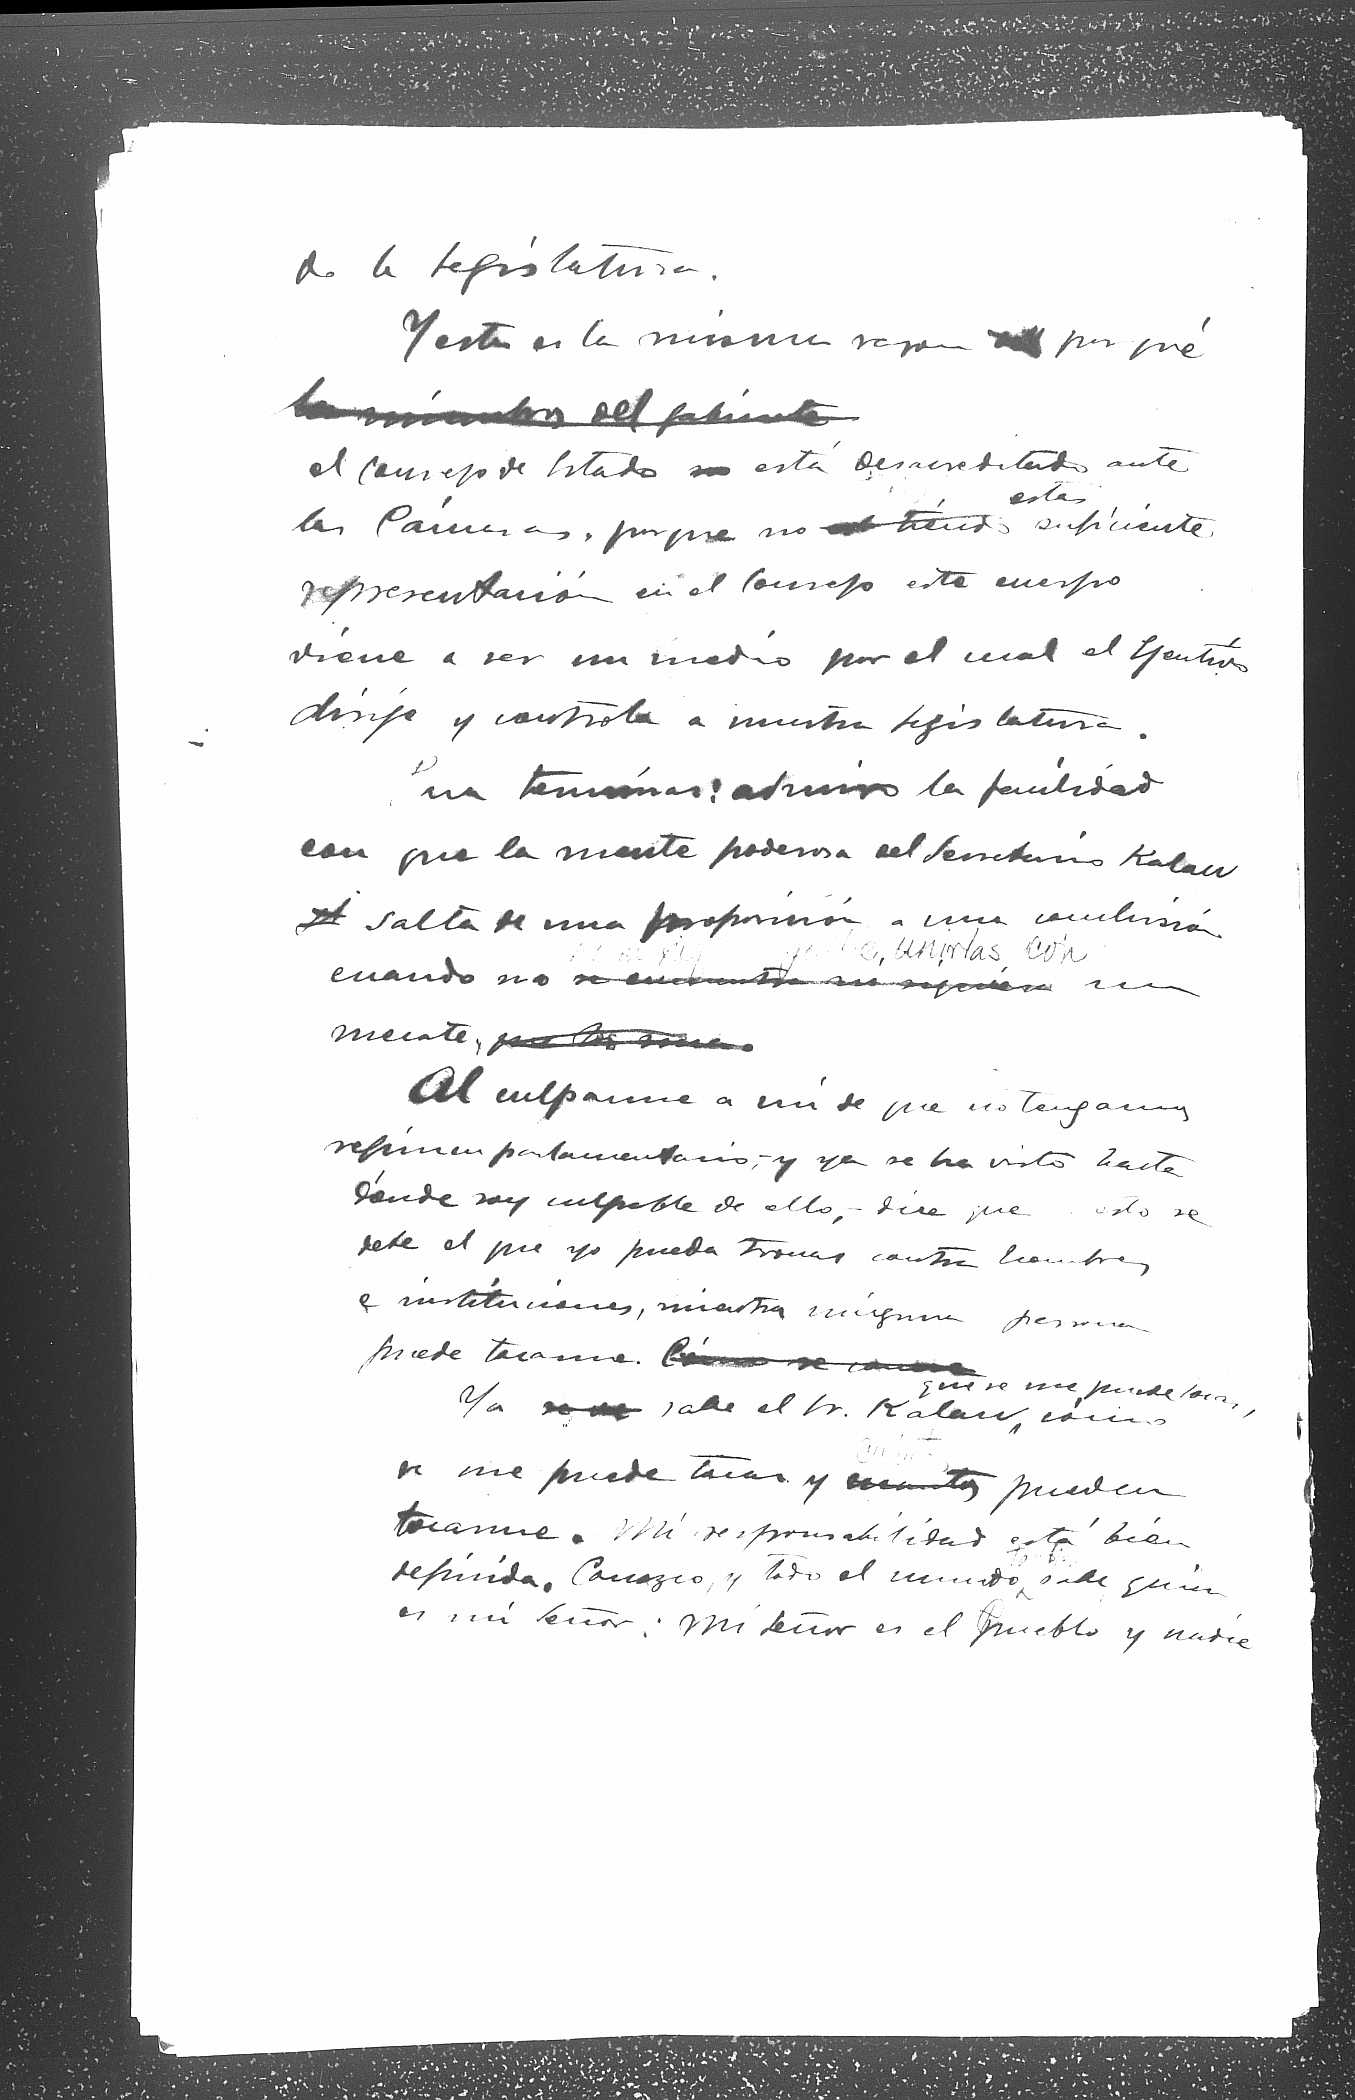 de la Legislatura.
Y esta es la misma razon por qué
los miembros del gabinete
el Consejo de Estado no está desacreditado ante
estas
las Cámaras, porque no tiendo suficiente
representación en el Consejo este cuerpo
viene a ser un medio por el cual el Ejecutivo
dirije y controla a nuestra Legislatura.
Para terminar: admiro la facilidad
con que la mente poderosa del Secretario Kalaw
salta de una proposición a una conclusión
unirlas con
cuando no se encuentra ni siquiera un
mecate, que los una.
Al culparme a mí de que no tengamos
régimen parlamentario, - y ya se ha visto hasta
dónde soy culpable de ello, - dice que esto se
debe el que yo pueda tronar contra hombres
e instituciones, mientra ninguna persona
puede tocarme. Cómo se conoce
que se me puede tocar,
Ya se ve sabe el Sr. Kalaw, cómo
se me puede tocar y cuantos pueden
tocarme. Mi responsabilidad está bien
definida. Conozco, y todo el mundo sabe quien
es mi Señor: Mi Señor es el pueblo y nadie